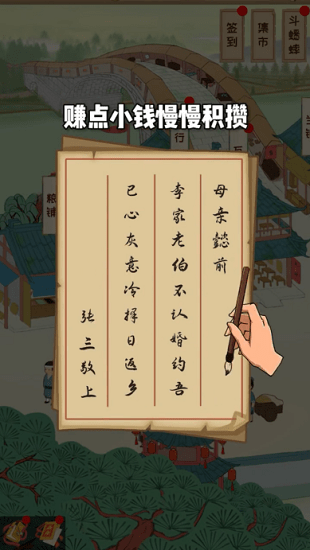 签到
集市
斗蟋蟀
赚点小钱慢慢积攒
行
粮铺
母亲懿前
李家老伯不认婚约吾
已心灰意冷择日返乡
张三敬上